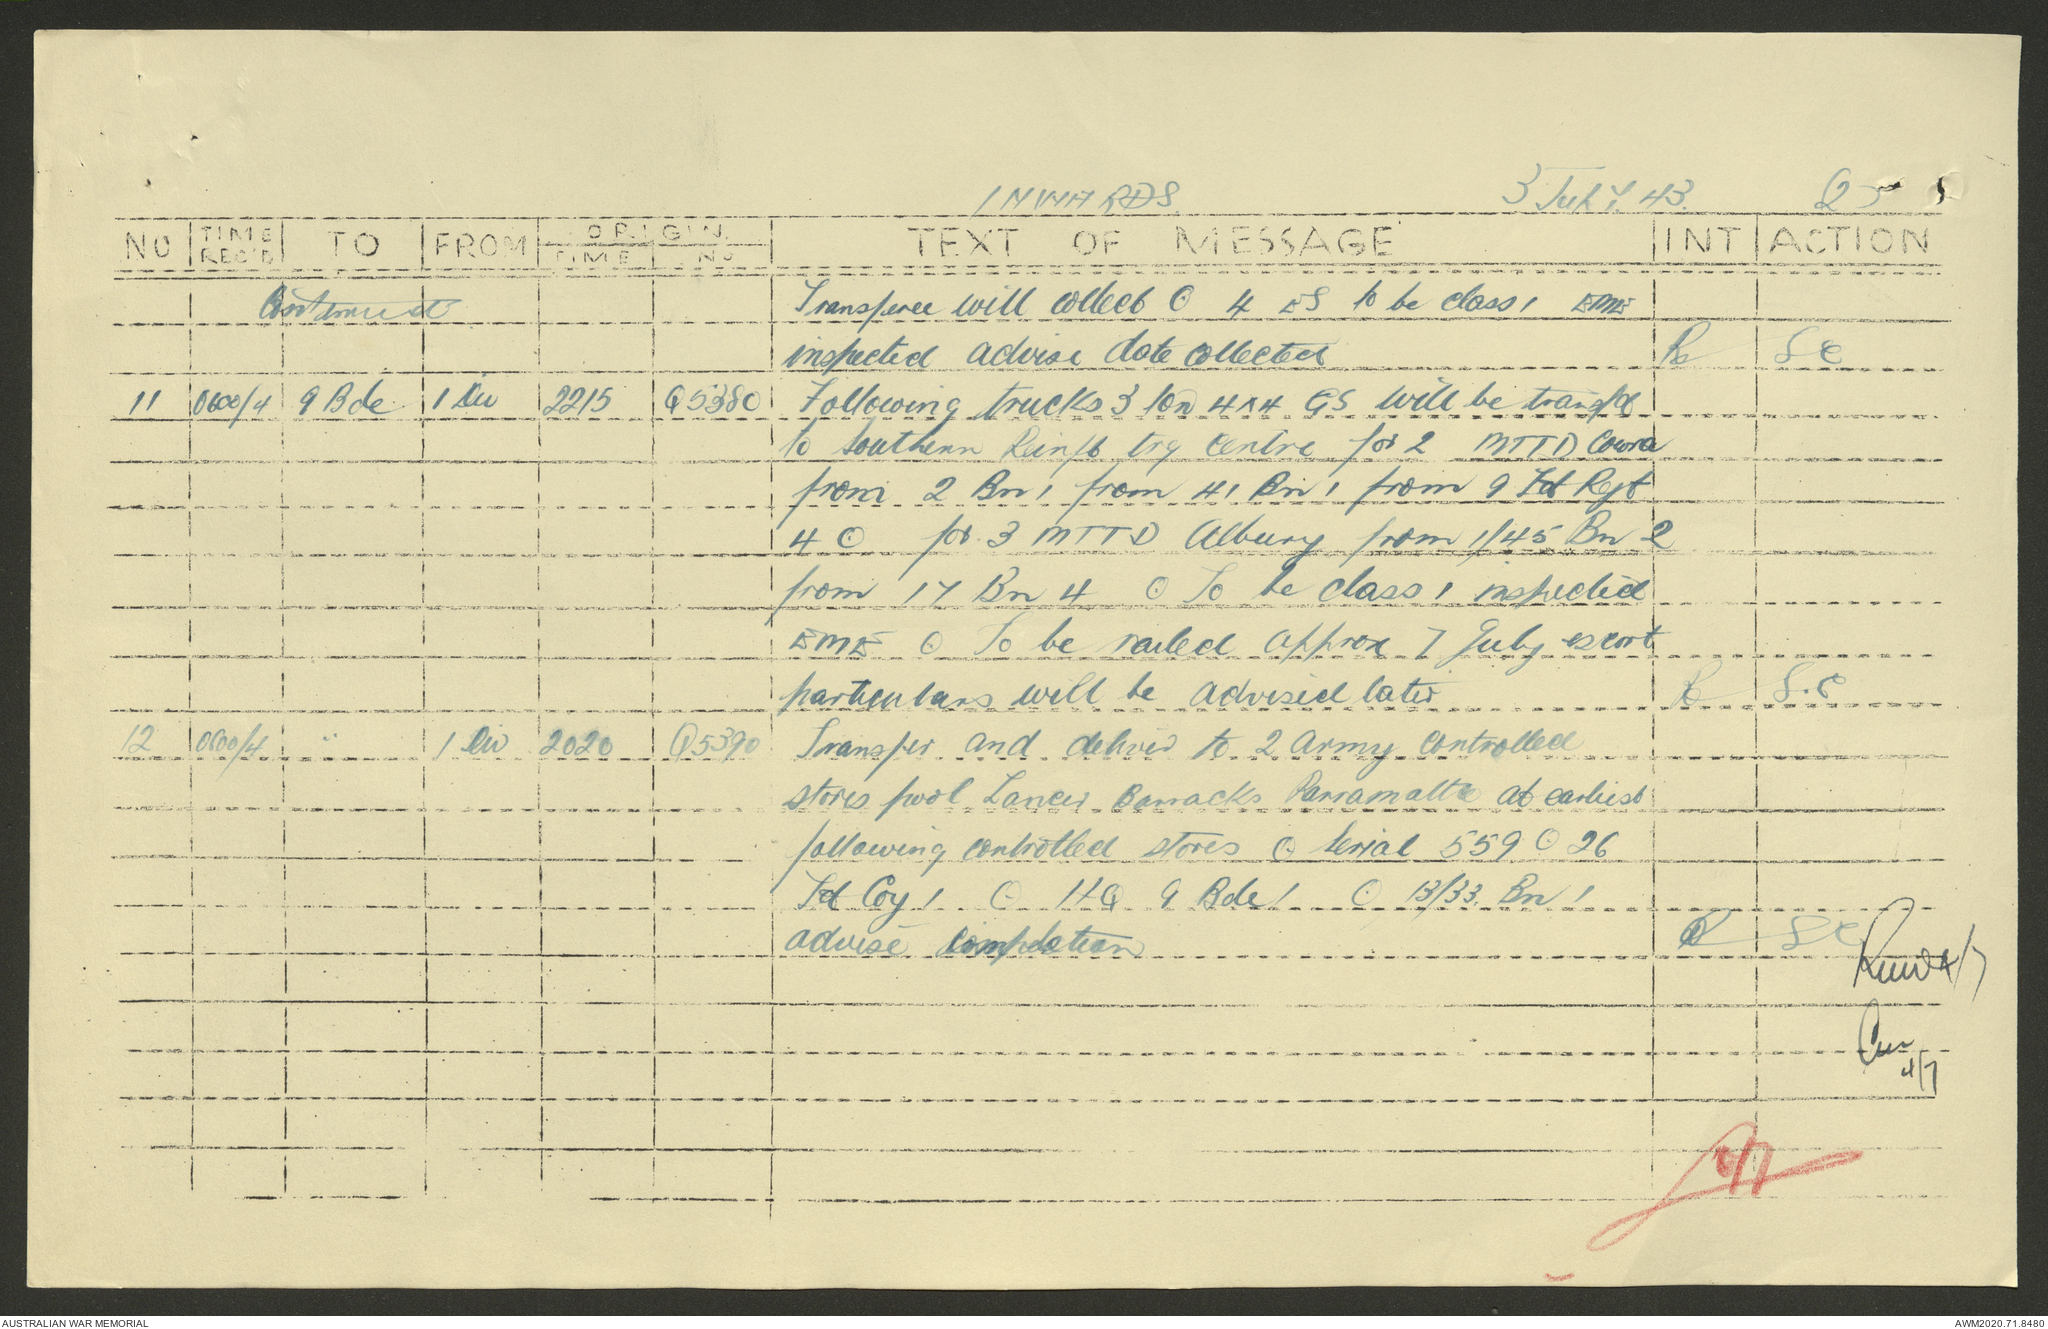 INWARDS 3 July. 43.
NO TIME REC'D TO FROM ORIGIN TIME NO TEXT OF MESSAGE INT ACTION
Continued Transferee will collect ⊙ 4 ES to be class 1 EME
inspected advise date collected R SC
11 0600/4 9 Bde 1 Div 2215 Q5380 Following trucks 3 ton 4x4 GS will be transfd
to Southern Reinft trg centre for 2 MTTD Cowra
from 2 Bn 1 from 41 Bn 1 from 9 Fd Regt
4 ⊙ for 3 MTTD Albury from 1/45 Bn 2
from 17 Bn 4 ⊙ To be class 1 inspected
EME ⊙ To be railed approx 7 July escort
particulars will be advised later R S.C
12 0600/4 " 1 Div 2020 Q5390 Transfer and deliver to 2 Army controlled
stores pool Lancer Barracks Parramatta at earliest
following controlled stores ⊙ serial 559 ⊙ 26
Fd Coy 1 ⊙ HQ 9 Bde 1 ⊙ 13/33 Bn 1
advise completion R SC
4/7
4/7
4/7
AUSTRALIAN WAR MEMORIAL AWM2020.71.8480